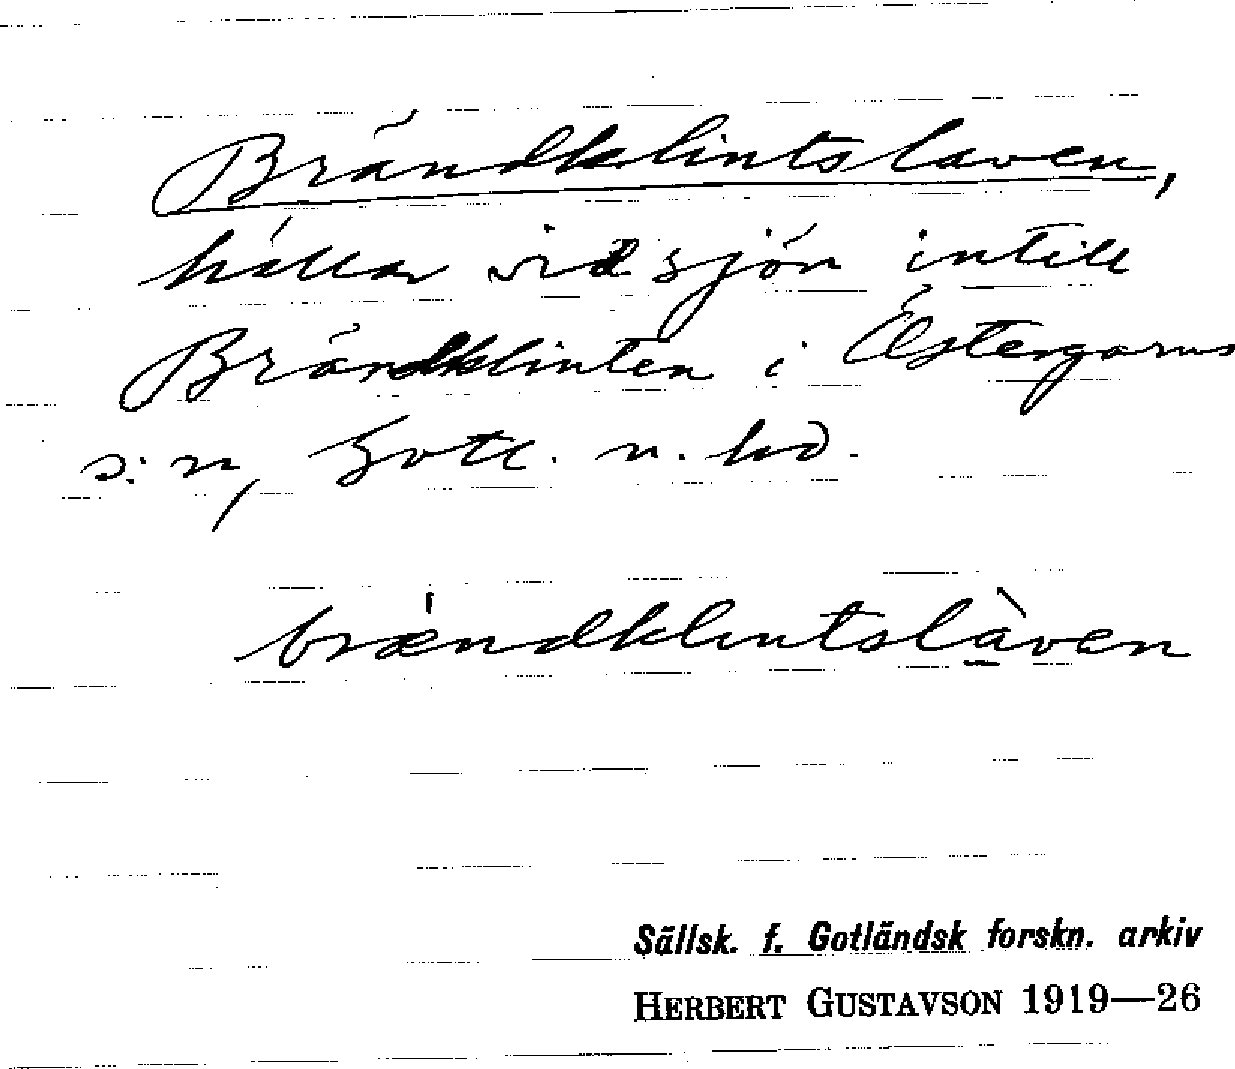 Brändklintslaven,
hällar vid sjön intill
Brändklinten i Östergarns
s:n, Gotl. n. hd.
brændklintslàven
Sällsk. f. Gotländsk forskn. arkiv
HERBERT GUSTAVSON 1919—26